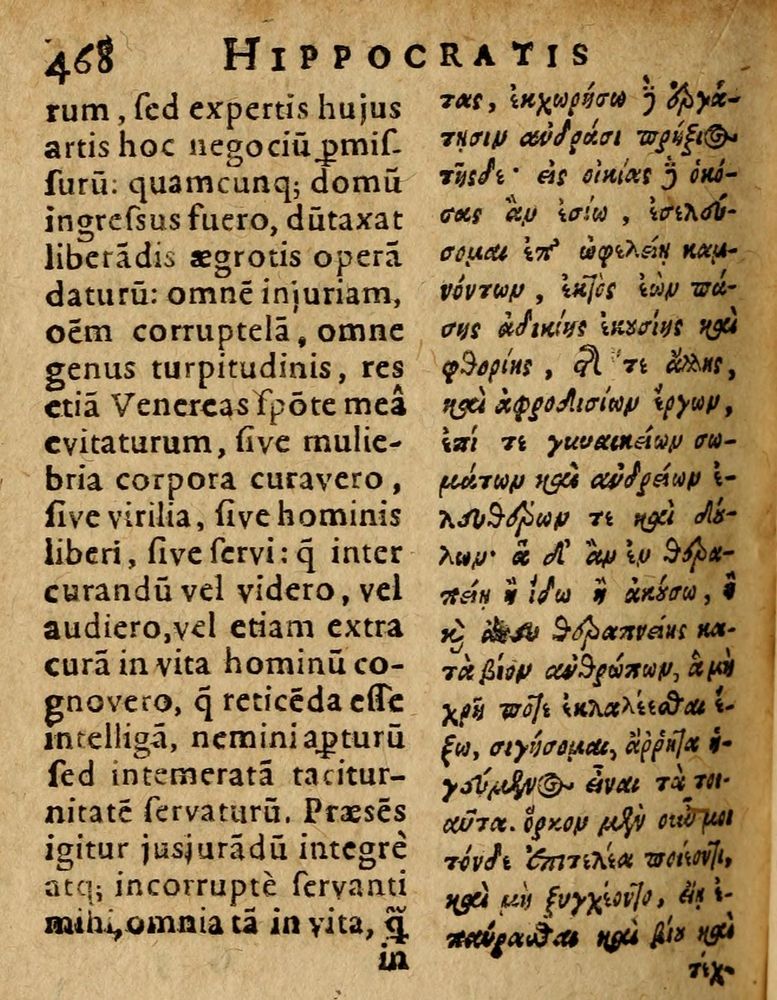 468 HIPPOCRATIS
rum, ſed expertis hujus
artis hoc negociũ ꝑmiſ-
ſurũ: quamcunq; domũ
ingreſsus fuero, dũtaxat
liberãdis ægrotis operã
daturũ: omnẽ injuriam,
oẽm corruptelã, omne
genus turpitudinis, res
etiã Venereas ſpõte meâ
evitaturum, ſive mulie-
bria corpora curavero,
ſive virilia, ſive hominis
liberi, ſive ſervi: q̃ inter
curandũ vel videro, vel
audiero, vel etiam extra
curã in vita hominũ co-
gnovero, q̃ reticẽda eſſe
intelligã, nemini aꝑturũ
ſed intemeratã tacitur-
nitatẽ ſervaturũ. Præsẽs
igitur jusjurãdũ integrè
atq; incorruptè ſervanti
mihi, omnia tã in vita, q̃
in
τας, ἐκχωρήσω ἢ ἐργά-
τησιν ἀνδράσι πρήξιος
τῆςδε· εἰς οἰκίας ἢ ὁκό-
σας ἂν ἐσίω, ἐσελεύ-
σομαι ἐπ' ὠφελείῃ καμ-
νόντων, ἐκτὸς ἐὼν πά-
σης ἀδικίης ἑκουσίης καὶ
φθορίης, τε ἄλλης,
καὶ ἀφροδισίων ἔργων,
ἐπί τε γυναικείων σω-
μάτων καὶ ἀνδρείων ἐ-
λευθέρων τε καὶ δού-
λων· ἃ δ' ἂν ἐν θερα-
πείῃ ἢ ἴδω ἢ ἀκούσω, ἢ
καὶ ἄνευ θεραπνείης κα-
τὰ βίον ἀνθρώπων, ἃ μὴ
χρῆ ποτε ἐκλαλέεσθαι ἔ-
ξω, σιγήσομαι, ἄῤῥητα ἡ-
γούμενος εἶναι τὰ τοι-
αῦτα. ὅρκον μὲν οὖν μοι
τόνδε ἐπιτελέα ποιέοντι,
καὶ μὴ ξυγχέοντο, εἴη ἐ-
παύρασθαι καὶ βίου καὶ
τέχ-